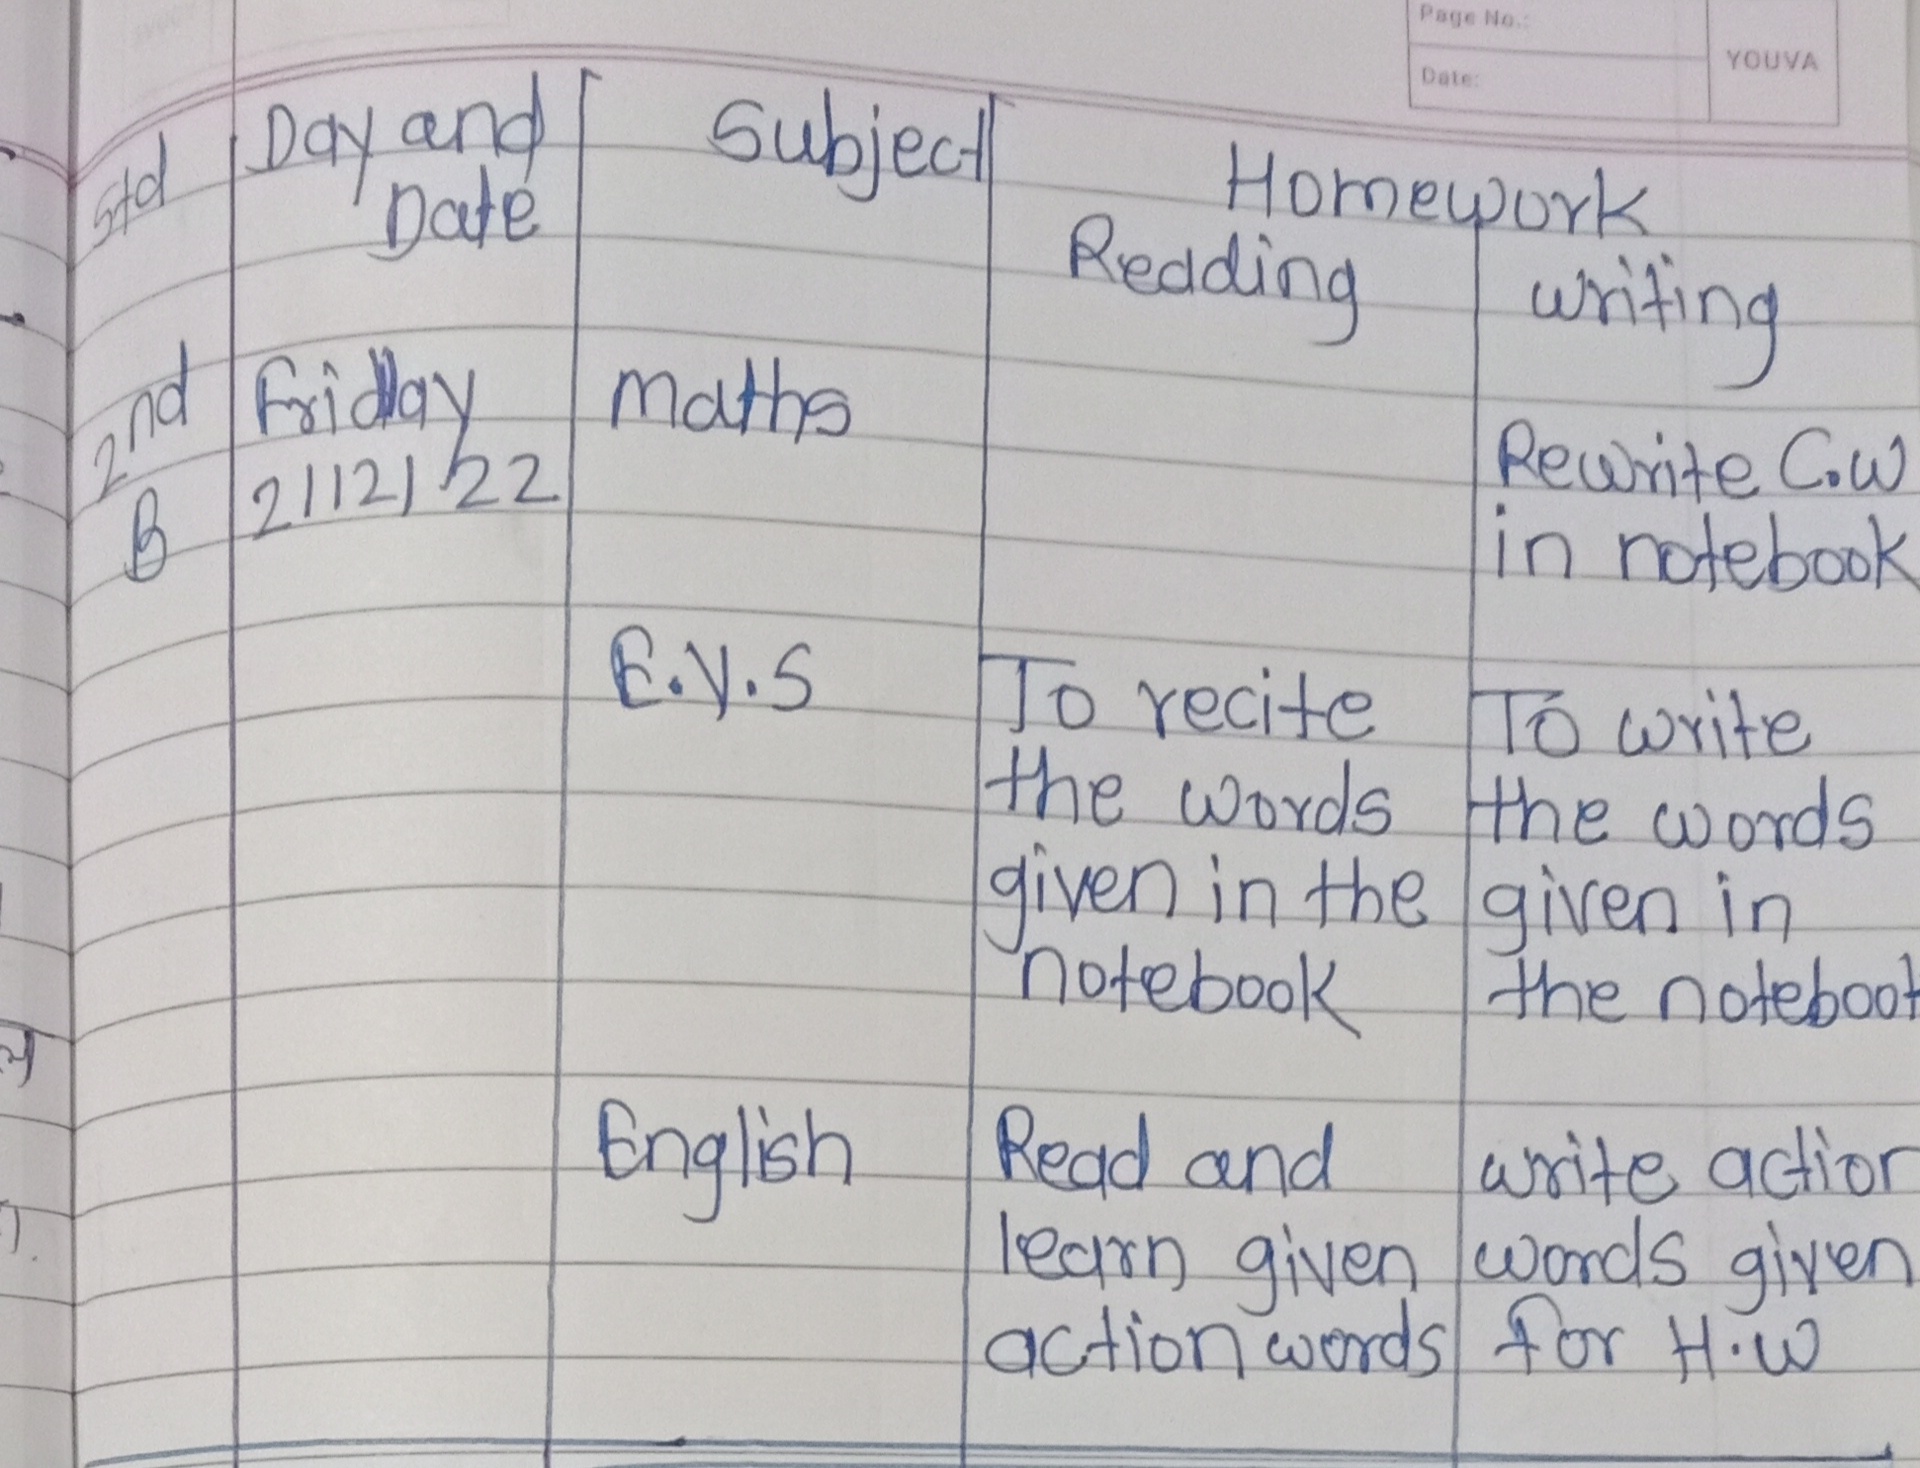 Page No.:
Date:
YOUVA
Std
Day and
Date
Subject
Homework
Reading
writing
2nd
B
Friday
2/12/22
Maths
Rewrite C.W
in notebook
E.V.S
To recite
the words
given in the
notebook
To write
the words
given in
the notebook
English
Read and
learn given
action words
write action
words given
for H.W